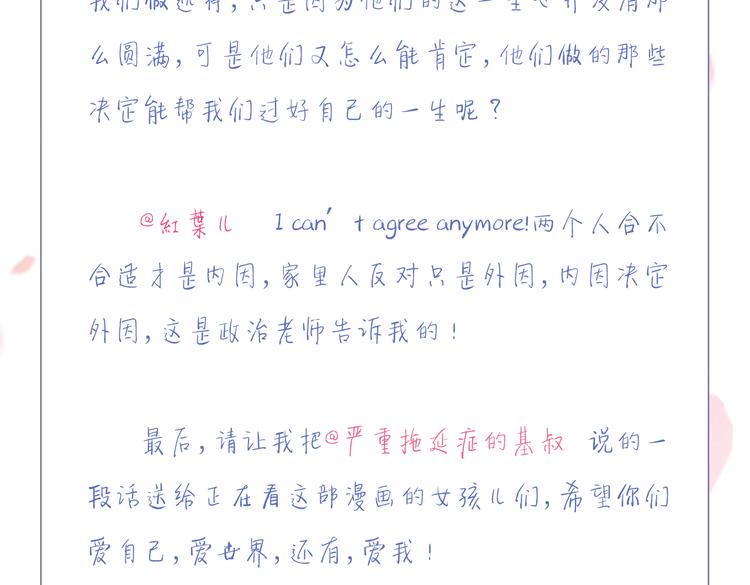 么圆满，可是他们又怎么能肯定，他们做的那些
决定能帮我们过好自己的一生呢？
@紅葉儿 I can't agree anymore!两个人合不
合适才是内因，家里人反对只是外因，内因决定
外因，这是政治老师告诉我的！
最后，请让我把@严重拖延症的基叔 说的一
段话送给正在看这部漫画的女孩儿们，希望你们
爱自己，爱世界，还有，爱我！